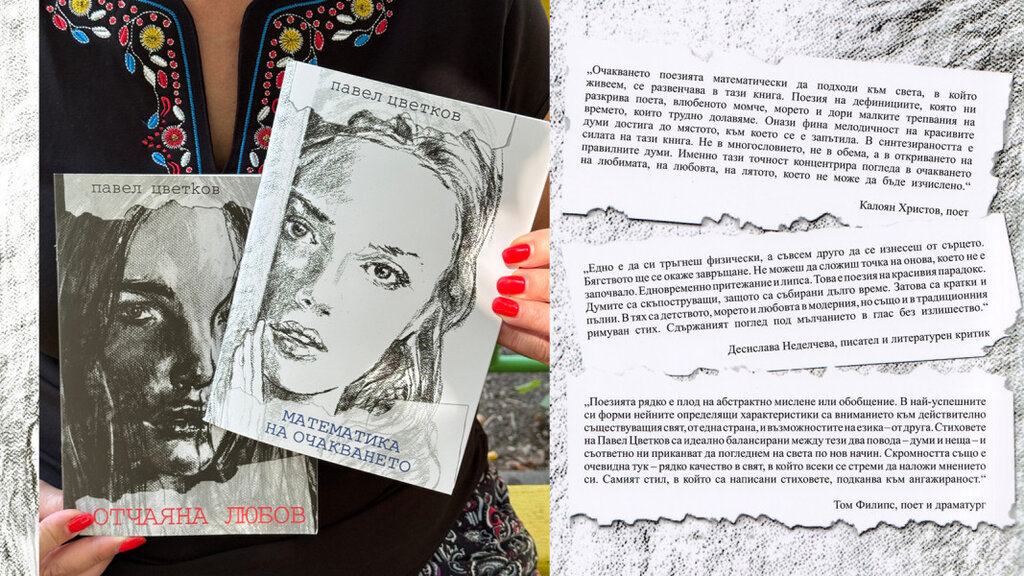 павел цветков
ОТЧАЯНА ЛЮБОВ
павел цветков
МАТЕМАТИКА
НА ОЧАКВАНЕТО
„Очакването поезията математически да подходи към света, в който
живеем, се развенчава в тази книга. Поезия на дефинициите, която ни
разкрива поета, влюбеното момче, морето и дори малките трепвания на
времето, които трудно долавяме. Онази фина мелодичност на красивите
думи достига до мястото, към което се е запътила. В синтезираността е
силата на тази книга. Не в многословието, не в обема, а в откриването на
правилните думи. Именно тази точност концентрира погледа в очакването
на любимата, на любовта, на лятото, което не може да бъде изчислено.“
Калоян Христов, поет
„Едно е да си тръгнеш физически, а съвсем друго да се изнесеш от сърцето.
Бягството ще се окаже завръщане. Не можеш да сложиш точка на онова, което не е
започвало. Едновременно притежание и липса. Това е поезия на красивия парадокс.
Думите са скъпоструващи, защото са събирани дълго време. Затова са кратки и
пълни. В тях са детството, морето и любовта в модерния, но също и в традиционния
римуван стих. Сдържаният поглед под мълчанието в глас без излишество.“
Десислава Неделчева, писател и литературен критик
„Поезията рядко е плод на абстрактно мислене или обобщение. В най-успешните
си форми нейните определящи характеристики са вниманието към действително
съществуващия свят, от една страна, и възможностите на езика – от друга. Стиховете
на Павел Цветков са идеално балансирани между тези два повода – думи и неща – и
съответно ни приканват да погледнем на света по нов начин. Скромността също е
очевидна тук – рядко качество в свят, в който всеки се стреми да наложи мнението
си. Самият стил, в който са написани стиховете, подканва към ангажираност.“
Том Филипс, поет и драматург